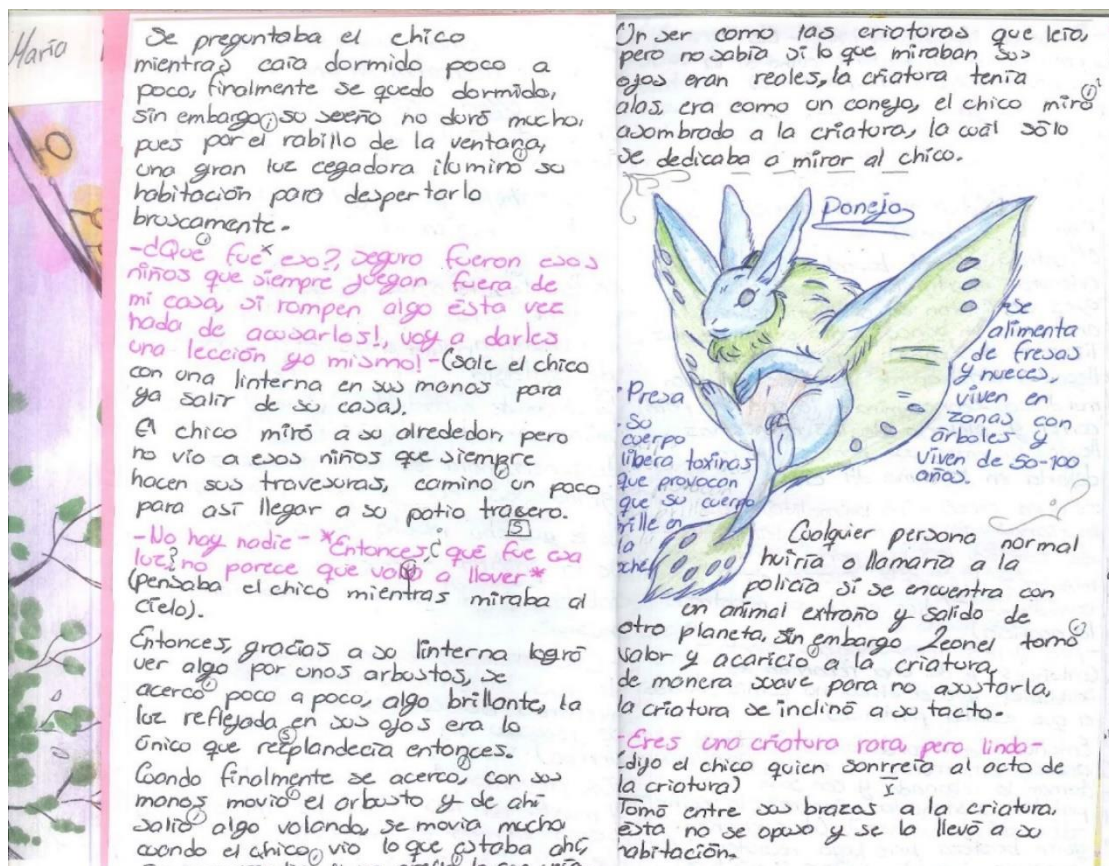 Mario
Se preguntaba el chico
mientras caia dormido poco a
poco, finalmente se quedo dormido,
sin embargo, su sueño no duró mucho,
pues por el rabillo de la ventana,
una gran luz cegadora ilumino su
habitación para despertarlo
bruscamente.
-¿Qué fue eso?, seguro fueron esos
niños que siempre juegan fuera de
mi casa, si rompen algo esta vez
nada de acusarlos!, voy a darles
una lección yo mismo! - (sale el chico
con una linterna en sus manos para
ya salir de su casa).
El chico miró a su alrededor, pero
no vio a esos niños que siempre
hacen sus travesuras, camino un poco
para así llegar a su patio tracero.
S
-No hay nadie - *Entonces, ¿qué fue esa
luz? no parece que vaya a llover*
(pensaba el chico mientras miraba al
cielo).
Entonces, gracias a su linterna logró
ver algo por unos arbustos, se
acercó poco a poco, algo brillante, la
luz reflejada en sus ojos era lo
único que rezplandecía entonces.
Cuando finalmente se acerco, con sus
manos movió el arbusto y de ahí
salió algo volando, se movia mucho,
cuando el chico vio lo que estaba ahí,
Un ser como las criaturas que leía,
pero no sabía si lo que miraban sus
ojos eran reales, la criatura tenía
alas, era como un conejo, el chico miró
asombrado a la criatura, la cuál sólo
se dedicaba a mirar al chico.
Ponejo
·se
alimenta
de fresas
y nueces,
viven en
zonas con
árboles y
viven de 50-100
años.
·Presa
Su
cuerpo
libera toxinas
que provocan
que su cuerpo
brille en
la
noche
Cualquier persona normal
huiría o llamaría a la
policía si se encuentra con
un animal extraño y salido de
otro planeta, sin embargo Leonel tomó
valor y acaricio a la criatura,
de manera suave para no asustarla,
la criatura se inclinó a su tacto.
-Eres una criatura rara, pero linda-
(dijo el chico quien sonrreía al acto de
la criatura)
Tomó entre su brazos a la criatura,
ésta no se opuso y se la llevó a su
habitación.